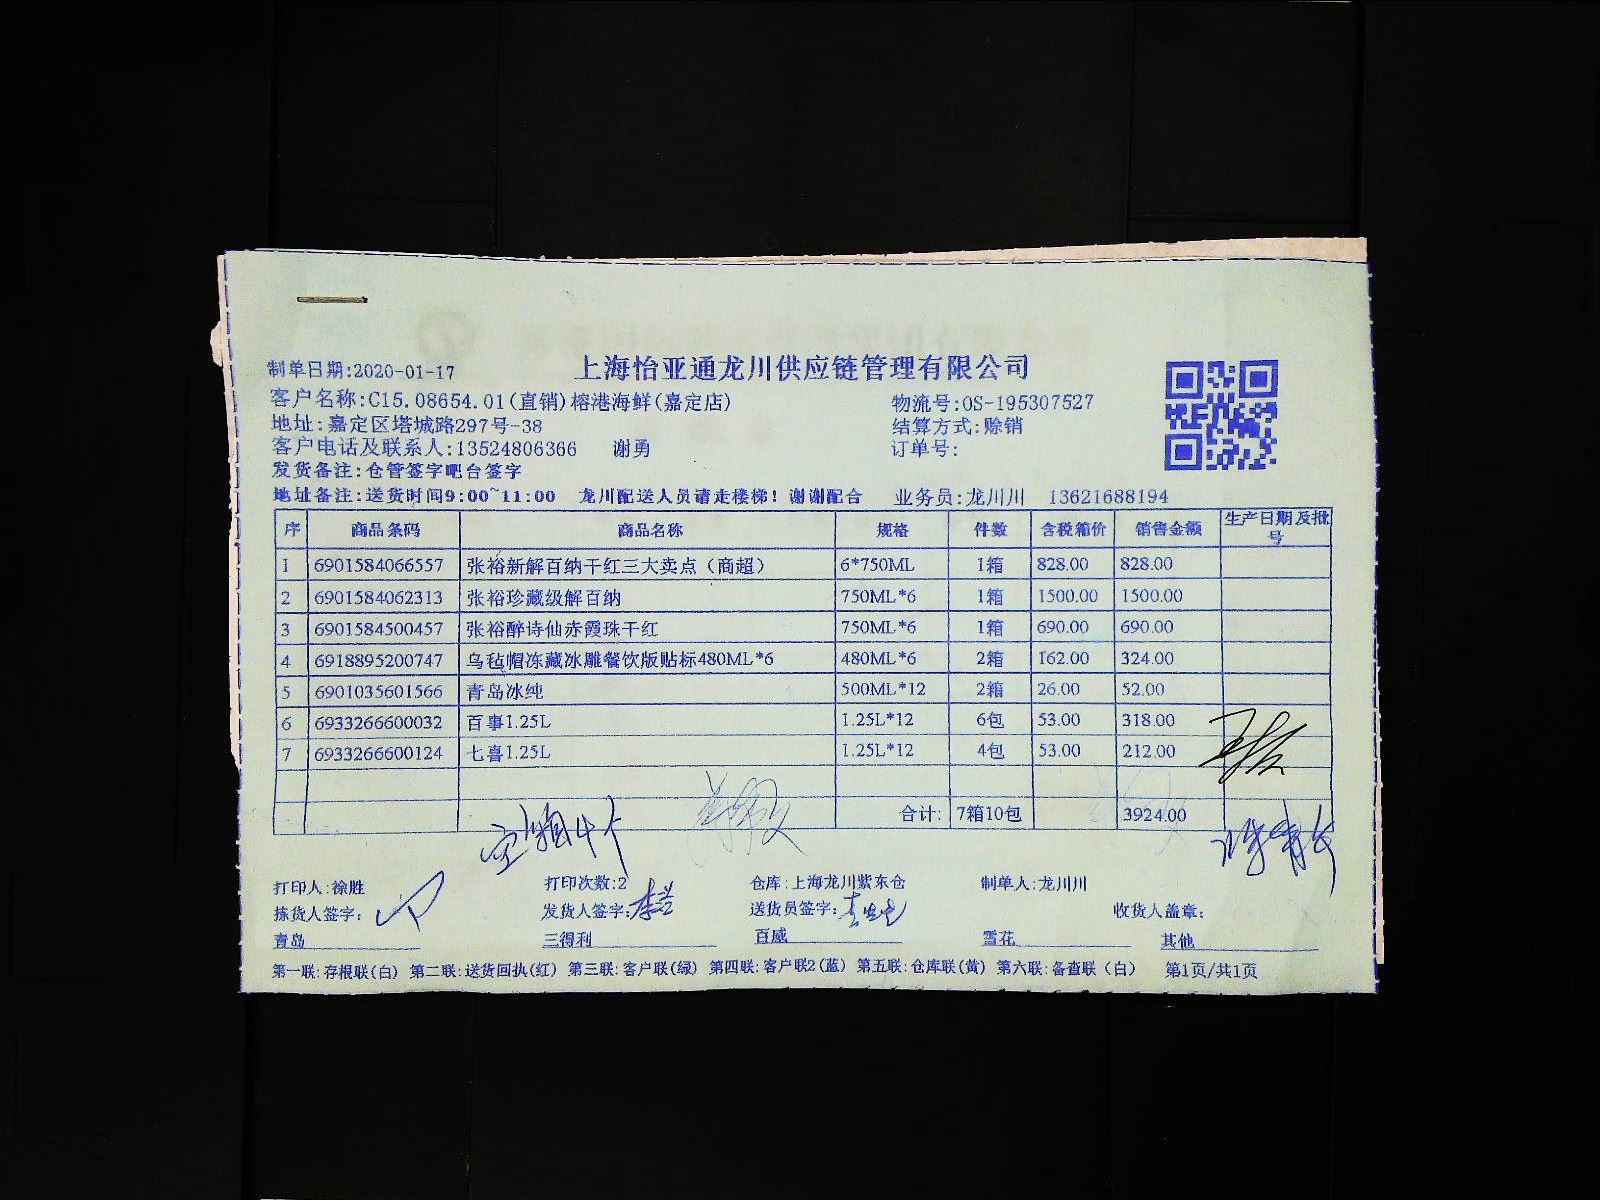 上海怡亚通龙川供应链管理有限公司
制单日期:2020-01-17
客户名称:C15.08654.01(直销)榕港海鲜(嘉定店) 物流号:OS-195307527
地址:嘉定区塔城路297号-38 结算方式:赊销
客户电话及联系人:13524806366 谢勇 订单号:
发货备注:仓管签字吧台签字
地址备注:送货时间9:00~11:00 龙川配送人员请走楼梯!谢谢配合 业务员:龙川川 13621688194
序 商品条码 商品名称 规格 件数 含税箱价 销售金额 生产日期及批号
1 6901584066557 张裕新解百纳干红三大卖点(商超) 6*750ML 1箱 828.00 828.00
2 6901584062313 张裕珍藏级解百纳 750ML*6 1箱 1500.00 1500.00
3 6901584500457 张裕醉诗仙赤霞珠干红 750ML*6 1箱 690.00 690.00
4 6918895200747 乌毡帽冻藏冰雕餐饮版贴标480ML*6 480ML*6 2箱 162.00 324.00
5 6901035601566 青岛冰纯 500ML*12 2箱 26.00 52.00
6 6933266600032 百事1.25L 1.25L*12 6包 53.00 318.00
7 6933266600124 七喜1.25L 1.25L*12 4包 53.00 212.00
合计: 7箱10包 3924.00
打印人:徐胜 打印次数:2 仓库:上海龙川紫东仓 制单人:龙川川
拣货人签字: 发货人签字: 送货员签字: 收货人盖章:
青岛 三得利 百威 雪花 其他
第一联:存根联(白) 第二联:送货回执(红) 第三联:客户联(绿) 第四联:客户联2(蓝) 第五联:仓库联(黄) 第六联:备查联(白) 第1页/共1页